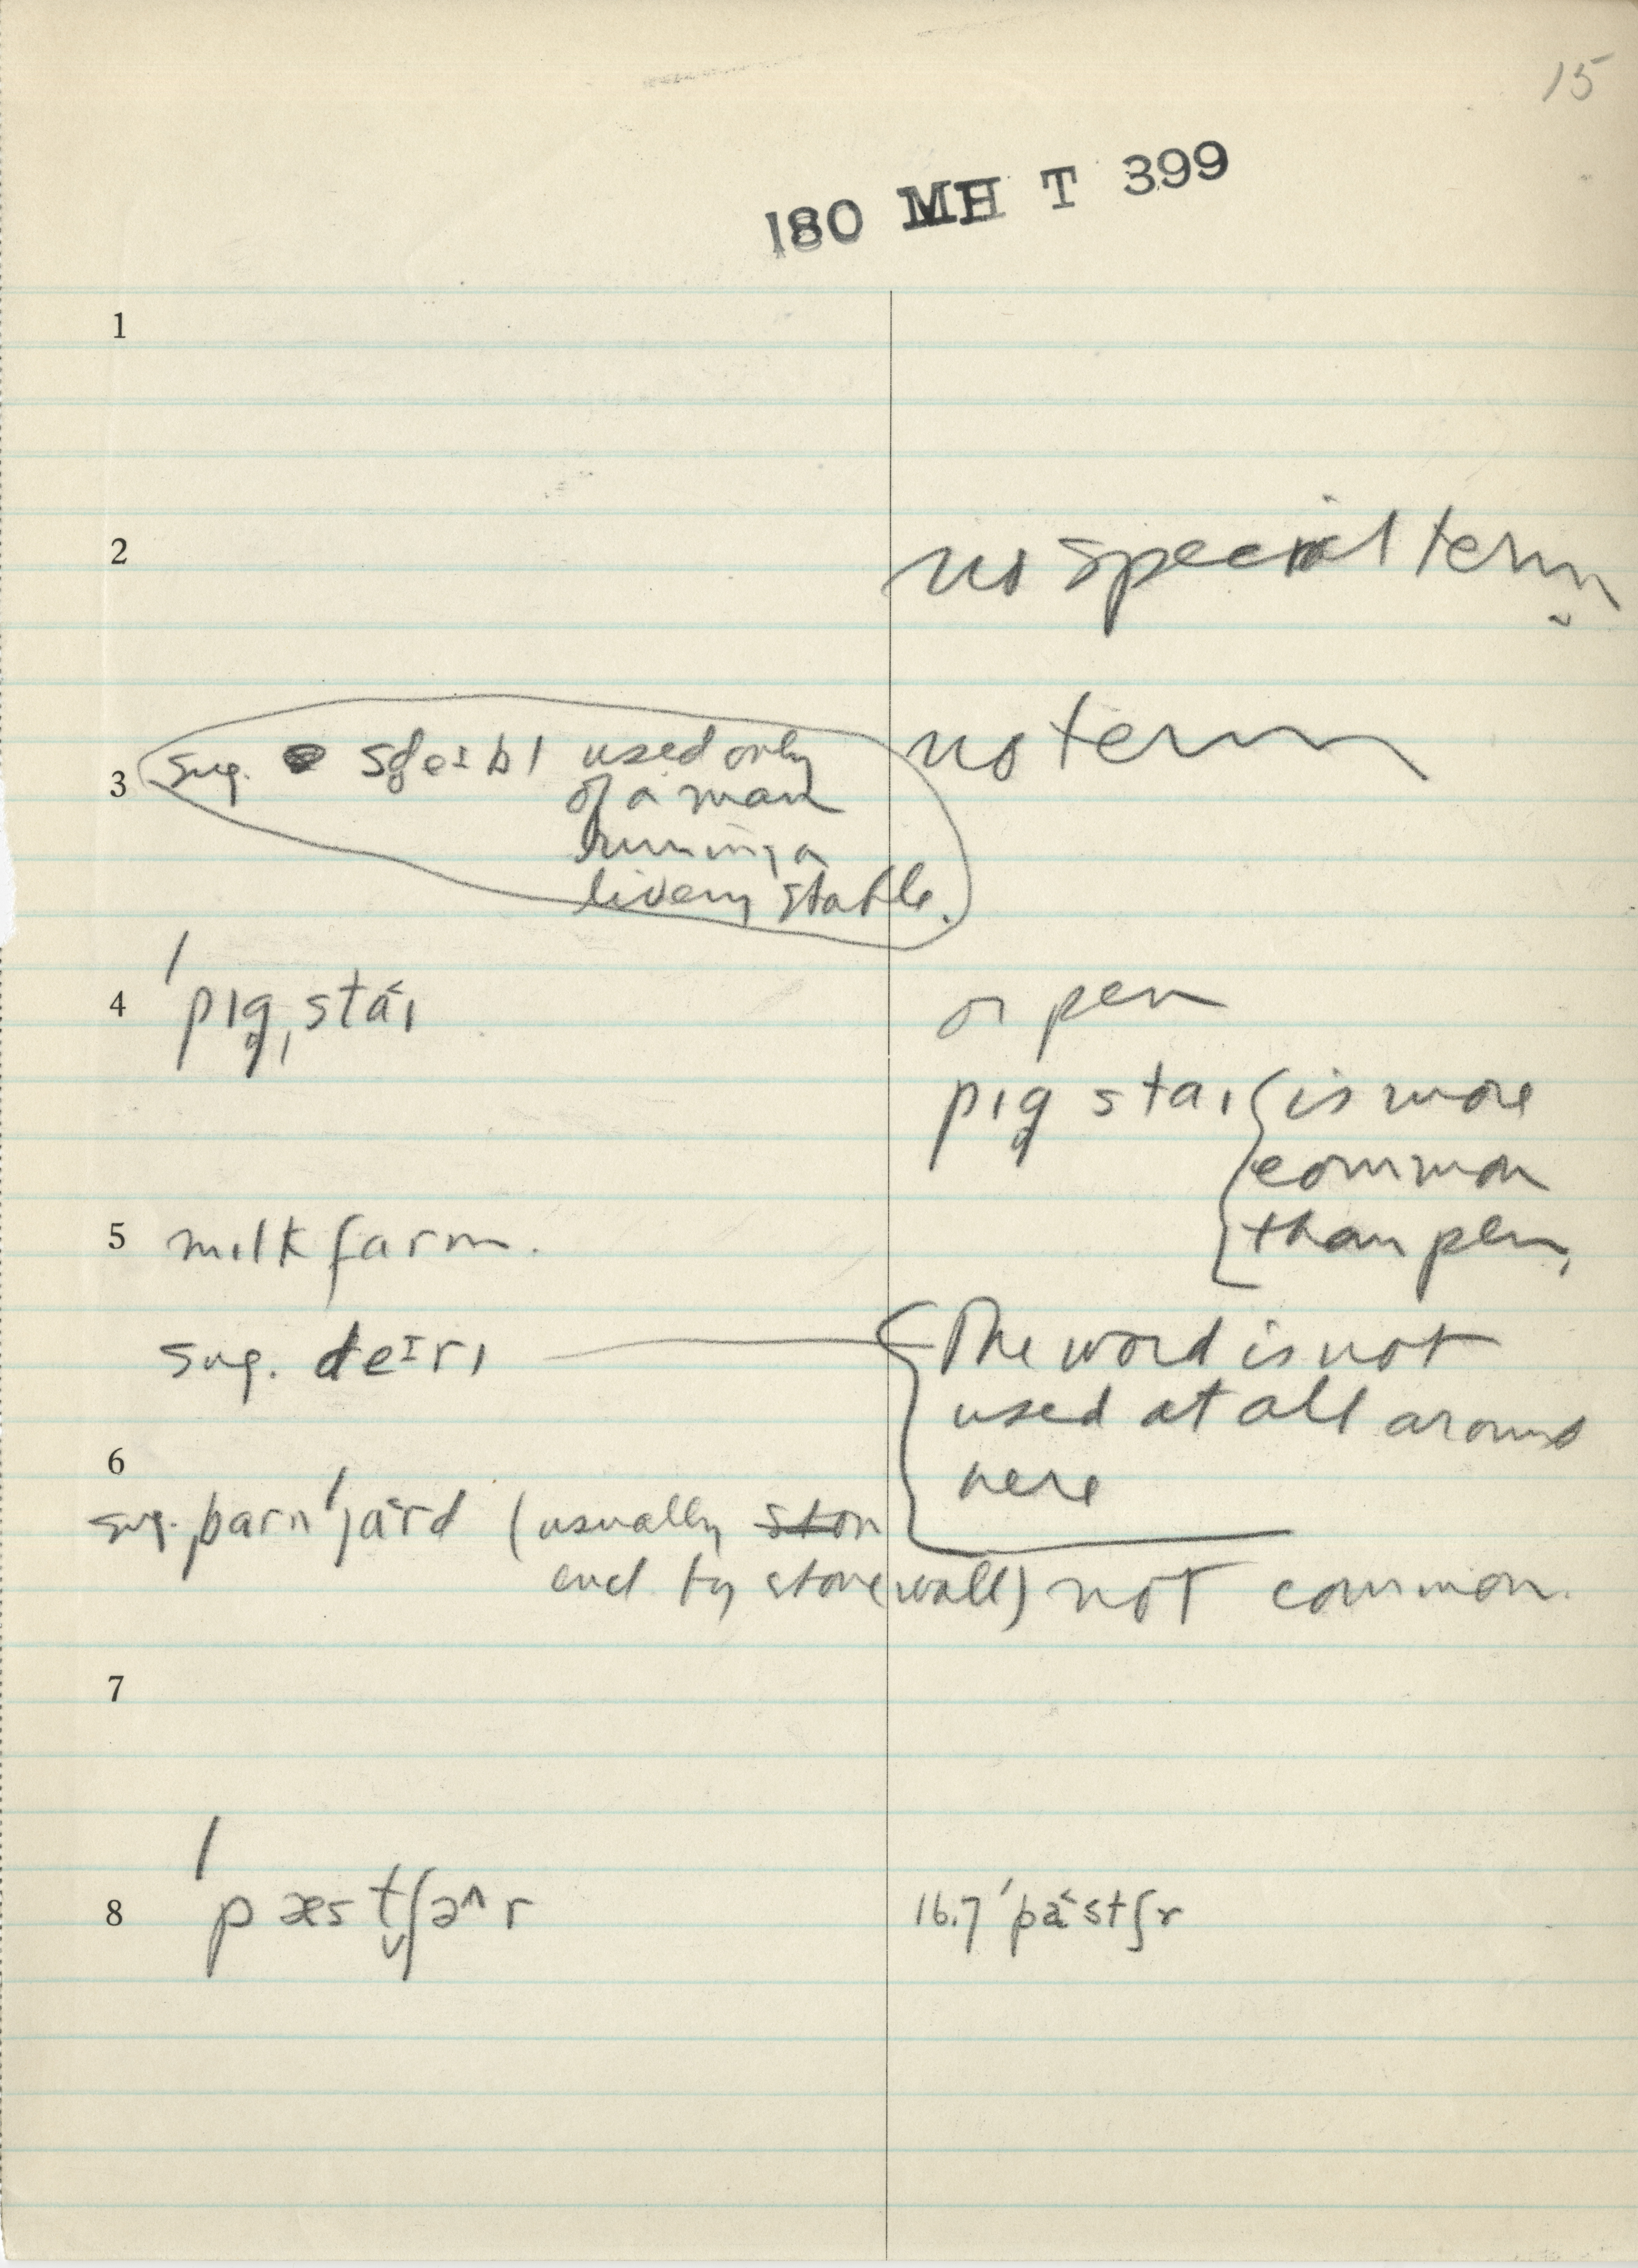 15
180 MH T 399
1
2 no special term
3 sug. used only no term
of a man
running a
livery stable.
4 ˈpɪg̥ˌsta˂ɪ or pen
pɪg̥ staɪ { is more
common
than pen,
5 mɪlk farm.
sug. deɪrɪ { The word is not
used at all around
here
6
sug. barnˈjard (usually ston
encl by stone wall) not common.
7
8 ˈpæst̬ʃə^r 16.7 ˈpa˂stʃr